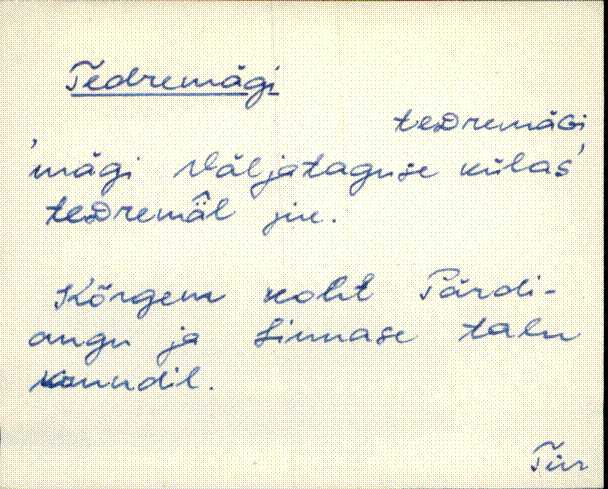 Tedremägi
teDremäGi
'mägi Väljataguse külas'
teDremäl jne.
Kõrgem koht Pärdi-
angu ja Linnase talu
krundil.
Tür